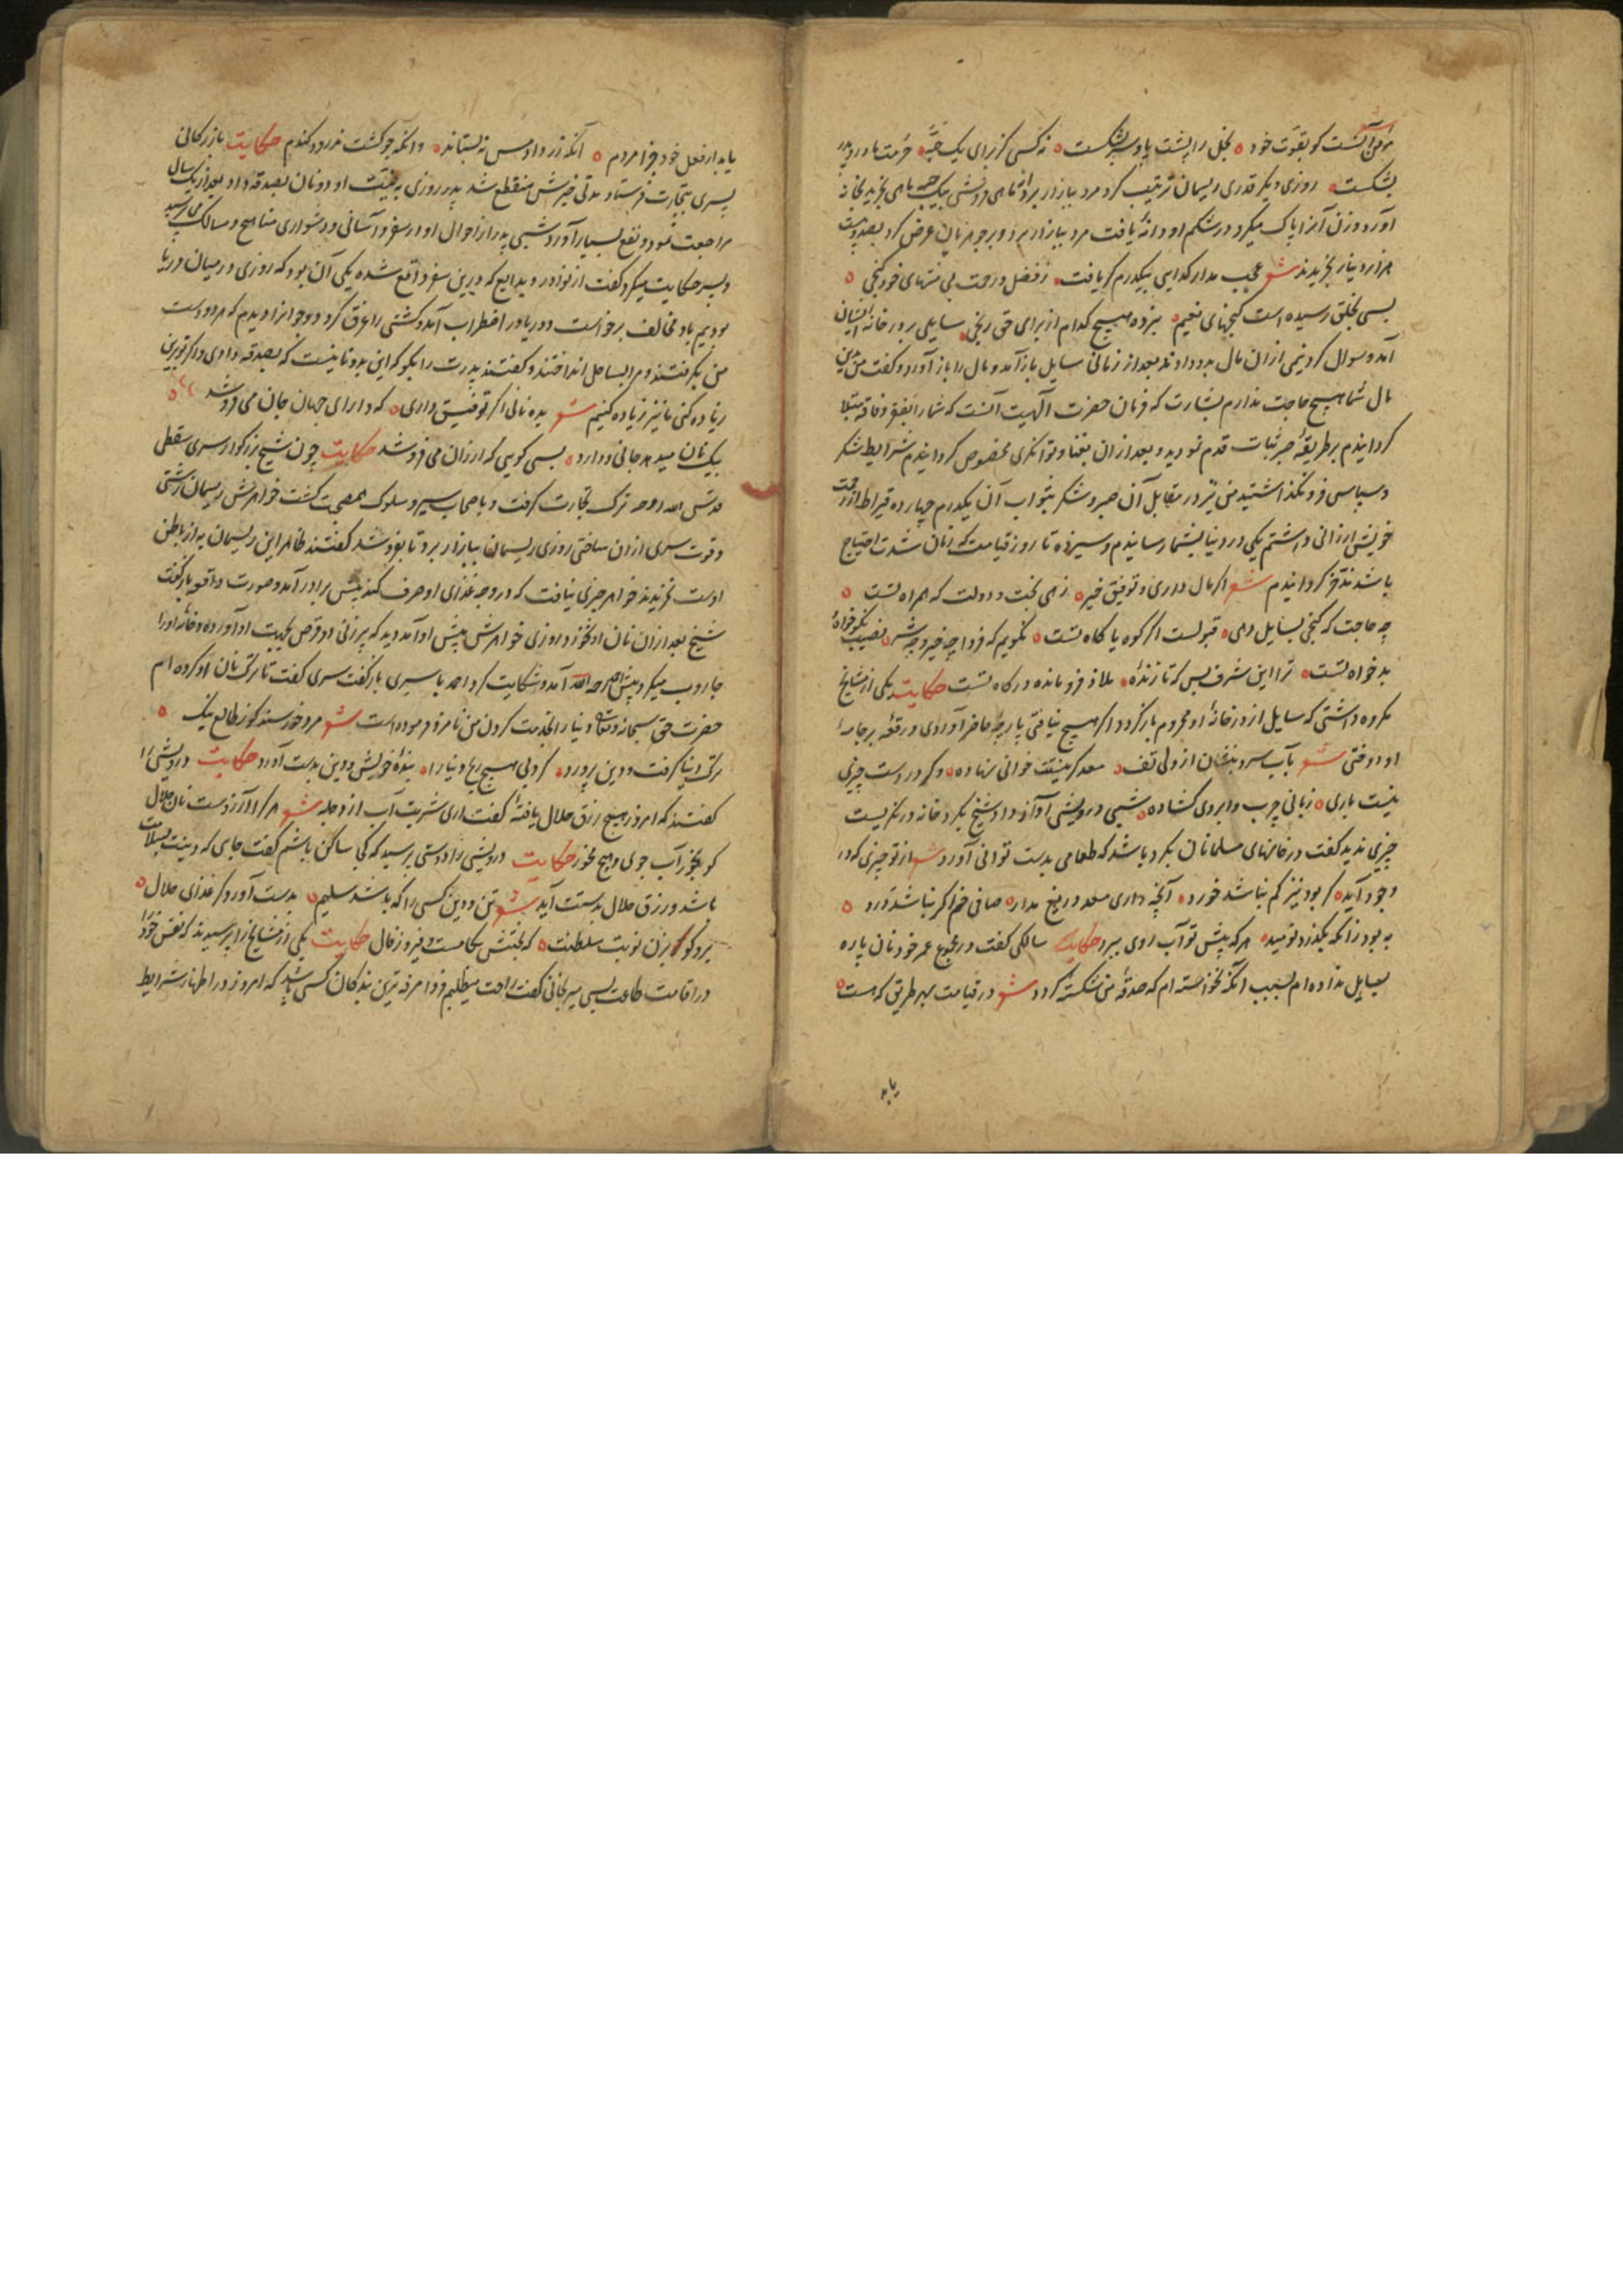 مؤمن آنست کو بقوت خود ه بخل را پشت پا و سر بشکست ه نه کسی کز برای یک حبه ه حرمت مادر و پدر
بشکست ه روزی دیگر قدری ریسمان ترتیب کرد مرد ببازار برد ماهی فروشی بیک حبه ماهی بخرید بخانه
آورد و زن آنرا پاک میکرد در شکم او دانهٔ یافت مرد ببازار برد و بر جوهریان عرض کرد بصد و بیست
هزار دینار بخریدند شعر عجب مدار کدایی بیکدرم کر یافت ه ز فضل و رحمت بی منتهای خود کنجی ه
بسی بخلق رسیده است کنجهای نعیم ه نبرده هیچ کدام از برای حق رنجی ه سایلی بر در خانه ایشان
آمد و سوال کرد نیمی از آن مال بدو دادند بعد از زمانی سایل باز آمد و مال را باز آورد و کفت من باین
مال شما هیچ حاجت ندارم بشارت که فرمان حضرت الهیت آنست که شما را بفقر و فاقه مبتلا
کردانیدم بر طریقهٔ صبر ثبات قدم نمودید و بعد از آن بغنا و توانکری مخصوص کردانیدم شرایط شکر
و سپاس فرو نکذاشتید من نیز در مقابل آن صبر و شکر بثواب آن یکدرم چهارده قیراط از رحمت
خویش ارزانی داشتم یکی در دنیا بشما رسانیدم و سیزده تا روز قیامت که زمان شدت احتیاج
باشد ذخیره کردانیدم شعر اکر مال داری و توفیق خیر ه زهی بخت و دولت که همراه تست ه
چه حاجت که کنجی بسایل دهی ه قبولست اکر کوه یا کاه تست ه نکویم که فردا چه خیر و چه شر ه نصیب نکوخواه
بدخواه تست ه ترا این شرف بس که تا زندهٔ ه ملاذ فرو مانده درکاه تست حکایت یکی از مشایخ
مکروه داشتی که سایل از در خانهٔ او محروم باز کردد اکر هیچ نیافتی پارچه حاضر آوردی و رقعه بر جامه
او دوختی شعر بآب سرد بنشان از دلی تف ه معد کر نیستت خوانی نهاده ه و کر در دست چیزی
نیست باری ه زبانی چرب و ابروی کشاده ه شبی درویشی آواز داد شیخ بکرد خانه در نکریست
چیزی ندید کفت در خانهای مسلمانان بکرد باشد که طعامی بدست توانی آورد شعر از تو چیزی که در
وجود آید ه کر بود نیز کم نباشد خورد ه آنچه داری معد دریغ مدار ه صافی خم اکر نباشد درد ه
به بود زانکه بکذرد نومید ه هر که پیش تو آب روی ببرد حکایت سالکی کفت در مجموع عمر خود نان پاره
بسایل نداده ام بسبب آنکه نخواسته ام که صدقهٔ من شکسته کردد شعر در قیامت بهر طریق که هست ه
یابد
یابد از فعل خود جزا مردم ه آنکه زر داد مس نه بستاند ه وانکه جو کشت ندرود کندم حکایت بازرکانی
پسری بتجارت فرستاد مدتی خبرش منقطع شد پدر روزی به نیت او دو نان بصدقه داد بعد از یک سال
مراجعت نمود و نفع بسیار آورد شبی پدر از احوال او در سفر و آسانی و دشواری مناهج و مسالک می پرسید
و پسر حکایت میکرد کفت از نوادر و بدایع که درین سفر واقع شده یکی آن بود که روزی در میان دریا
بودیم باد مخالف برخواست و دریا در اضطراب آمد و کشتی را غرق کرد دو جوانرا دیدم که هر دو دست
من بکرفتند و مرا بساحل انداختند و کفتند پدرت را بکو که این بدو تا نیست که بصدقه دادی و اکر تو برین
زیاده کنی ما نیز زیاده کنیم شعر بده نانی اکر توفیق داری ه که دارای جهان جان می فروشد ه
بیک نان میدهد جانی دو دارد ه بسی کویی که ارزان می فروشد حکایت چون شیخ بزرکوار سری سقطی
قدس الله روحه ترک تجارت کرفت و باصحاب سیر و سلوک هم صحبت کشت خواهرش ریسمان رشتی
و قوت سری از آن ساختی روزی ریسمان ببازار برد تا بفروشد کفتند ظاهر این ریسمان به از باطن
اوست نخریدند خواهر چیزی نیافت که در وجه غذای او صرف کند پیش برادر آمد و صورت واقعه باز کفت
شیخ بعد از آن نان او نخورد روزی خواهرش پیش او آمد دید که پیرزنی دو قرص بجهت او آورده و خانه او را
جاروب میکرد پیش احمد رحمه الله آمد و شکایت کرد احمد با سری باز کفت سری کفت تا ترک نان او کرده ام
حضرت حق سبحانه و تعالی دنیا را بخدمت کردن من نامزد فرموده است شعر مرد خورسند کو ز طالع نیک ه
ترک دنیا کرفت و دین پرورد ه کرد بی هیچ رنج دنیا را ه بندهٔ خویش و دین بدست آورد حکایت درویشی را
کفتند که امروز هیچ رزق حلال یافتهٔ کفت آری شربت آب از دجله شعر هر کرا آرزوست نان حلال
کو بخور آب جوی و هیچ مخور حکایت درویشی را دوستی پرسید که کجا ساکن باشم کفت جای که دینت بسلامت
باشد و رزق حلال بدستت آید شعر تن و دین کسی را که باشد سلیم ه بدست آورد کر غذای حلال ه
برو کو بزن نوبت سلطنت ه که بختش بکامست و فیروز فال حکایت یکی از مشایخ را پرسیدند که نفس خود را
در اقامت طاعت بسی میرنجانی کفت راحت میطلبم فردا مرفه ترین بندکان کسی باشد که امروز در اظهار شرایط